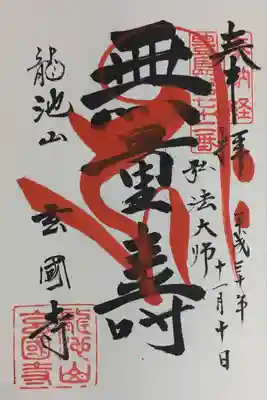 奉拝
平成三十年
十一月十日
弘法大師
無量壽
龍池山
玄國寺
龍池山
玄國寺